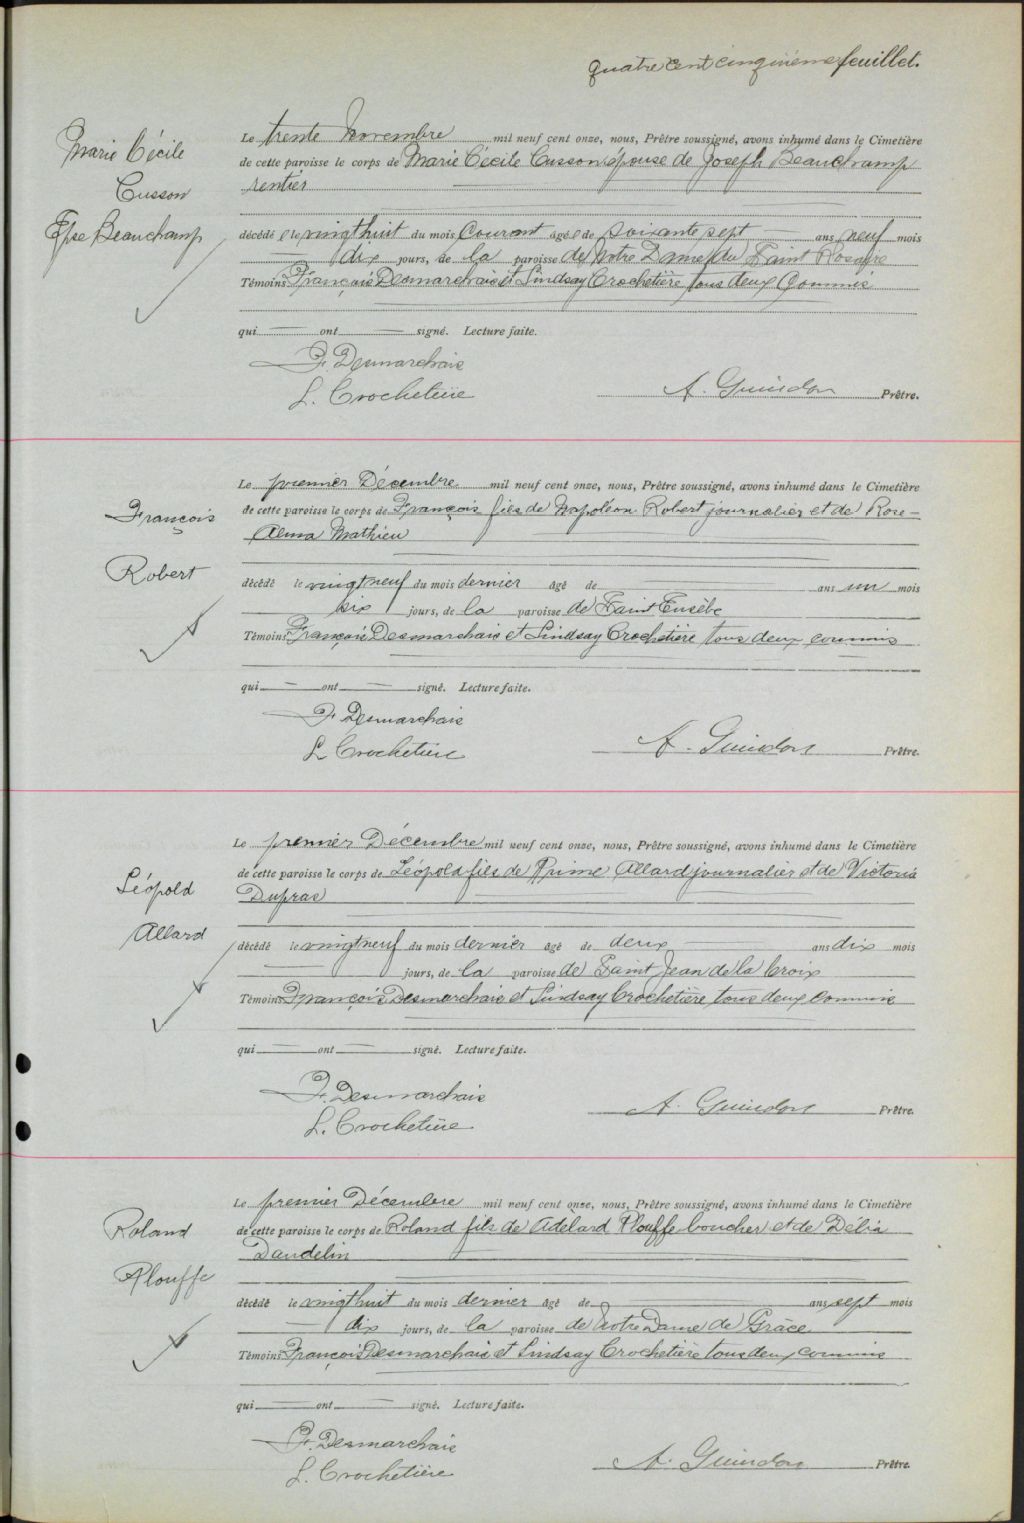 quatre cent cinquième feuillet.
Marie Cécile
Cusson
Épse Beauchamp
Le trente Novembre mil neuf cent onze, nous, Prêtre soussigné, avons inhumé dans le Cimetière
de cette paroisse le corps de Marie Cécile Cusson épouse de Joseph Beauchamp
rentier
décédée le vingt huit du mois Courant âgée de soixante sept ans neuf mois
dix jours, de la paroisse de Notre Dame du Saint Rosaire
Témoins François Desmarchais et Lindsay Crochetière tous deux Commis
qui ont signé. Lecture faite.
F. Desmarchais
L. Crochetière
A. Guindon Prêtre.
François
Robert
Le premier Décembre mil neuf cent onze, nous, Prêtre soussigné, avons inhumé dans le Cimetière
de cette paroisse le corps de François fils de Napoléon Robert journalier et de Rose-
Alma Mathieu
décédé le vingt neuf du mois dernier âgé de ans un mois
six jours, de la paroisse de Saint Eusèbe
Témoins François Desmarchais et Lindsay Crochetière tous deux commis
qui ont signé. Lecture faite.
F. Desmarchais
L Crochetière
A. Guindon Prêtre.
Léopold
Allard
Le premier Décembre mil neuf cent onze, nous, Prêtre soussigné, avons inhumé dans le Cimetière
de cette paroisse le corps de Léopold fils de Prime Allard journalier et de Victoria
Dupras
décédé le vingt neuf du mois dernier âgé de deux ans dix mois
jours, de la paroisse de Saint Jean de la Croix
Témoins François Desmarchais et Lindsay Crochetière tous deux commis
qui ont signé. Lecture faite.
F. Desmarchais
L. Crochetière
A. Guindon Prêtre.
Roland
Plouffe
Le premier Décembre mil neuf cent onze, nous, Prêtre soussigné, avons inhumé dans le Cimetière
de cette paroisse le corps de Roland fils de Adélard Plouffe boucher et de Délia
Daudelin
décédé le vingt huit du mois dernier âgé de ans sept mois
dix jours, de la paroisse de Notre Dame de Grâce
Témoins François Desmarchais et Lindsay Crochetière tous deux commis
qui ont signé. Lecture faite.
F. Desmarchais
L. Crochetière
A. Guindon Prêtre.